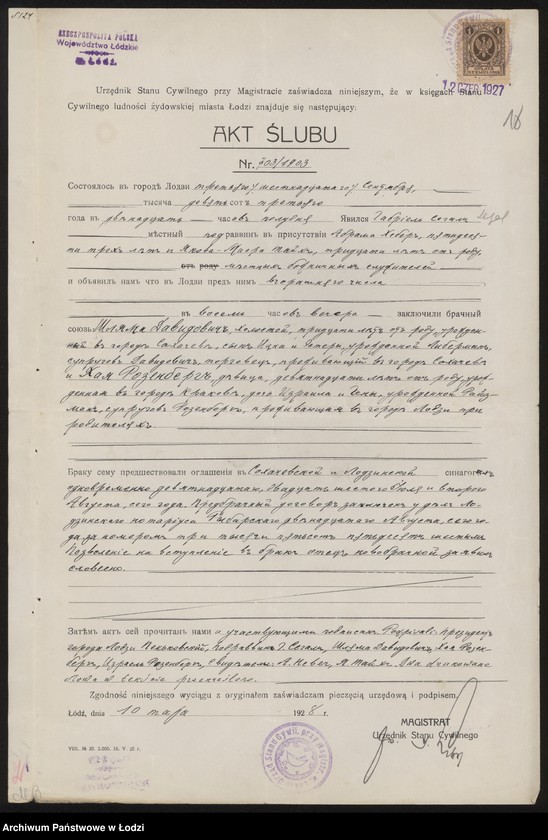 RZECZPOSPOLITA POLSKA
Województwo Łódzkie
m. ŁÓDŹ
12 CZER. 1927
18
Urzędnik Stanu Cywilnego przy Magistracie zaświadcza niniejszym, że w księgach Stanu
Cywilnego ludności żydowskiej miasta Łodzi znajduje się następujący:
AKT ŚLUBU
Nr. 303/1903
Состоялось въ городѣ Лодзи третьяго/шестнадцатаго/ Сентября,
тысяча девятьсотъ третьяго
года въ двѣнадцать часовъ полудня Явился Габріель Сегалъ Segal
мѣстный подраввинъ въ присутствіи Абрама Хеберъ, пятидеся-
ти трехъ лѣтъ и Якова-Меера Тайхъ, тридцати лѣтъ отъ роду,
отъ роду мѣстныхъ божничныхъ служителей
и объявилъ намъ что въ Лодзи предъ нимъ вчерашняго числа
въ восемь часовъ вечера заключили брачный
союзъ Шляма Давидовичъ, холостой, тридцати лѣтъ отъ роду, урожден-
ный въ городѣ Сохачевѣ, сынъ Ицка и Эстеры, урожденной
супруговъ Давидовичъ, торговецъ, проживающій въ городѣ Сохачевѣ
и Хая Розенбергъ, дѣвица, девятнадцати лѣтъ отъ роду, уро-
жденная въ городѣ Краковѣ, дочь Израиля и урожденной
супруговъ Розенбергъ, проживающая въ городѣ Лодзи при
родителяхъ.
Браку сему предшествовали оглашенія въ Сохачевской и Лодзинской синагогахъ
одновременно девятнадцатаго, двадцать шестого Іюля и второго
Августа, сего года. Предбрачный договоръ заключенъ у Ло-
дзинскаго нотаріуса Рыбарскаго двѣнадцатаго Августа, сего го-
да, за номеромъ три тысячи пятьсотъ пятьдесятъ шестымъ
Позволеніе на вступленіе въ бракъ отецъ новобрачной заявилъ
словесно.
Затѣмъ актъ сей прочитанъ нами и участвующими подписанъ Podpisali: Президентъ
города Лодзи Пеньковскій, Подраввинъ Г. Сегалъ, Шляма Давидовичъ, Хая Розен-
бергъ, Израель Розенбергъ, Свидѣтели: А. Хеберъ, Я. Тайхъ. Dwa drukowane
słowa w tekście przekreślono.
Zgodność niniejszego wyciągu z oryginałem zaświadczam pieczęcią urzędową i podpisem.
Łódź, dnia 10 maja 1928 r.
MAGISTRAT
Urzędnik Stanu Cywilnego
Archiwum Państwowe w Łodzi